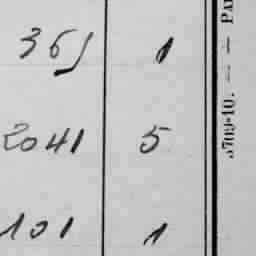 365 1
2041 5
101 1
5709-10. — — PAT